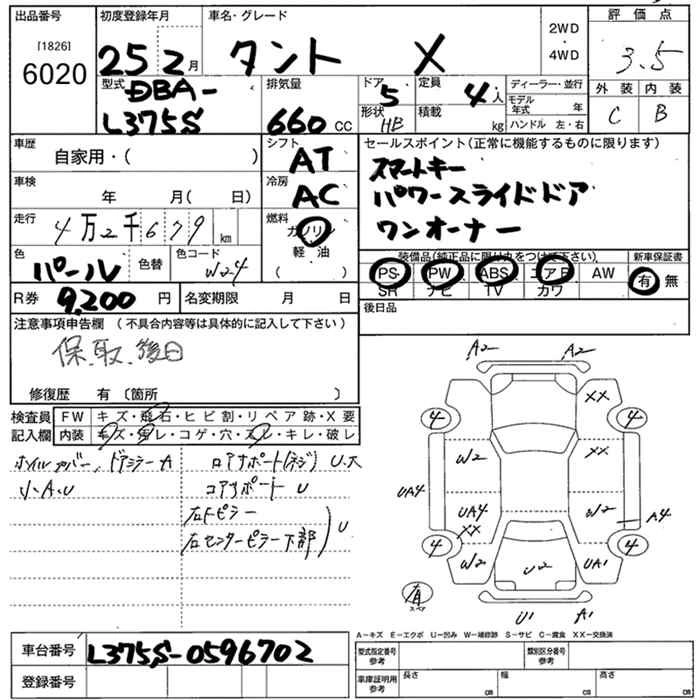 出品番号
[1826]
6020
初度登録年月
25 2月
車名・グレード
タント X
2WD
・
4WD
評価点
3.5
外装 内装
C B
型式 DBA-
L375S
排気量
660 CC
ドア 5
形状 HB
定員 4人
積載 kg
ディーラー・並行
モデル年式 年
ハンドル 左・右
車歴
自家用・( )
車検
年 月( 日)
走行
4万2千679 km
色
パール
色替
色コード
W24
R券 9,200円
名変期限 月 日
シフト
AT
冷房
AC
燃料
ガソリン
軽油
( )
セールスポイント(正常に機能するものに限ります)
スマートキー
パワースライドドア
ワンオーナー
装備品(純正品に限り丸をつけて下さい)
PS PW ABS エアB AW
SR ナビ TV カワ
新車保証書
有・無
後日品
注意事項申告欄 (不具合内容等は具体的に記入して下さい)
保、取、後日
修復歴 有〔箇所 〕
検査員記入欄
FW キズ・飛石・ヒビ割・リペア跡・X要
内装 キズ・汚レ・コゲ・穴・スレ・キレ・破レ
ホイルカバー、ドアミラーA
小A、U
ロアサポート(ネジ) U、大
コアサポート U
右Fピラー
右センターピラー下部 U
A2 A2
XX
4 4
W2 XX
UA4
UA4 W2
XX A4
4 4
W2 W2 UA1
有
スペア
U1 A1
A−キズ E−エクボ U−凹み W−補修跡 S−サビ C−腐食 XX−交換済
車台番号 L375S-0596702
登録番号
型式指定番号
参考
類別区分番号
参考
車庫証明用
参考
長さ cm
幅 cm
高さ cm